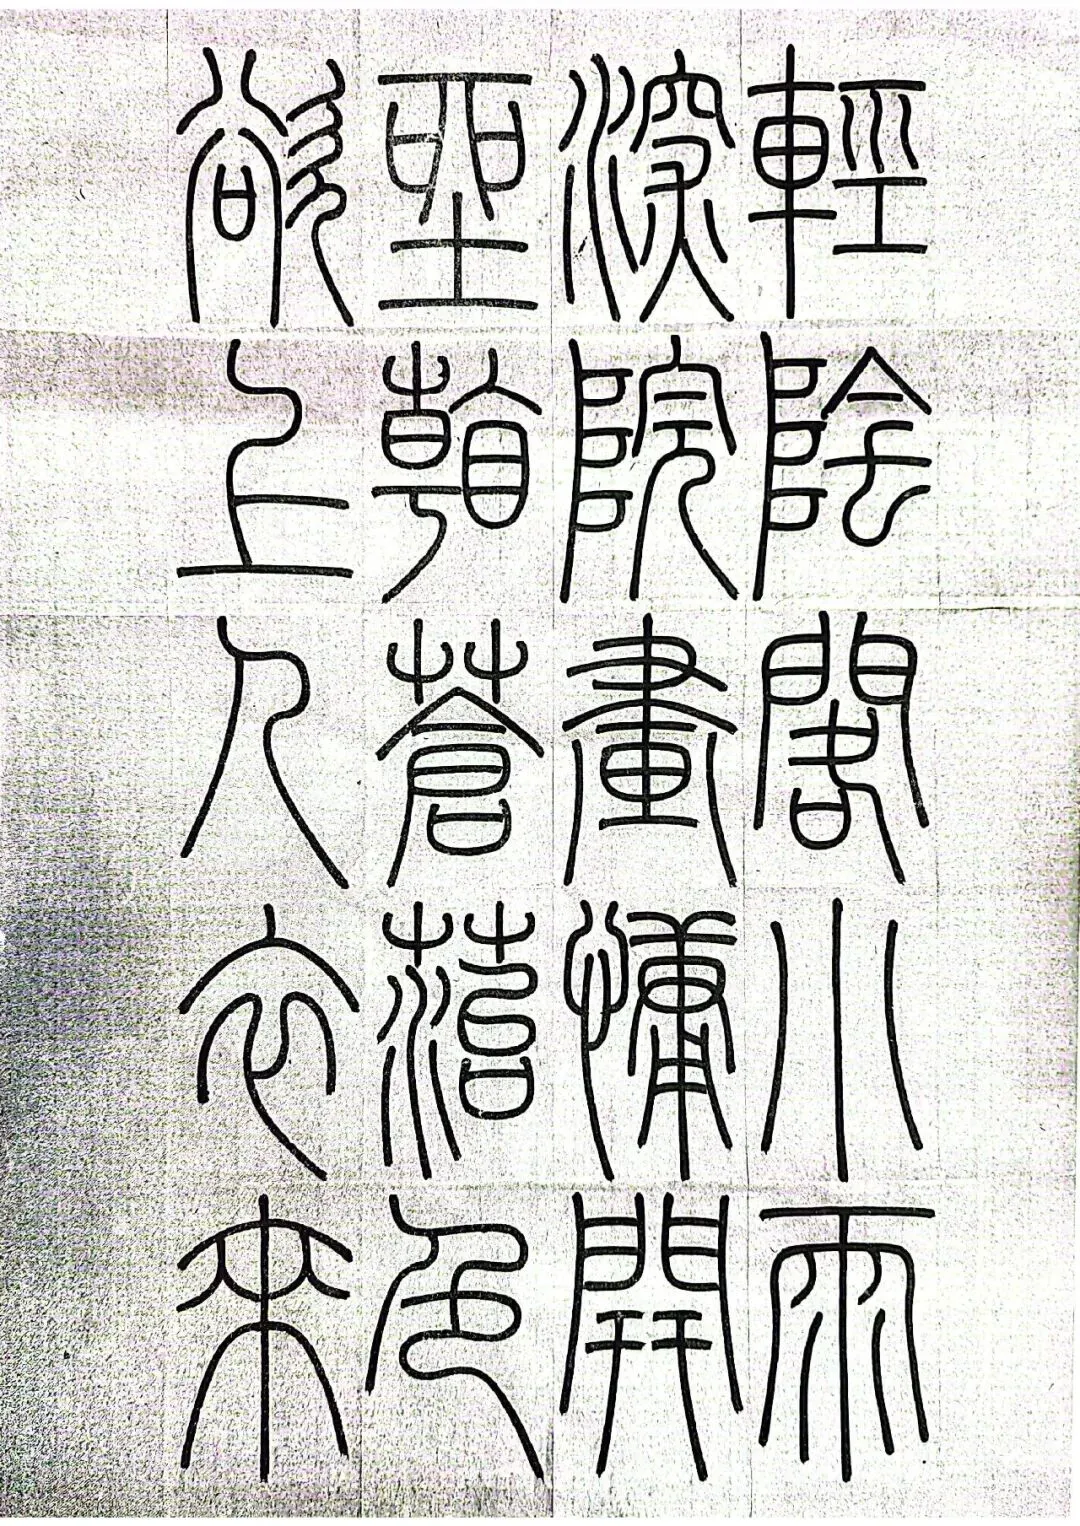 輕陰閣小雨
深院晝慵開
坐看蒼苔色
欲上人衣來